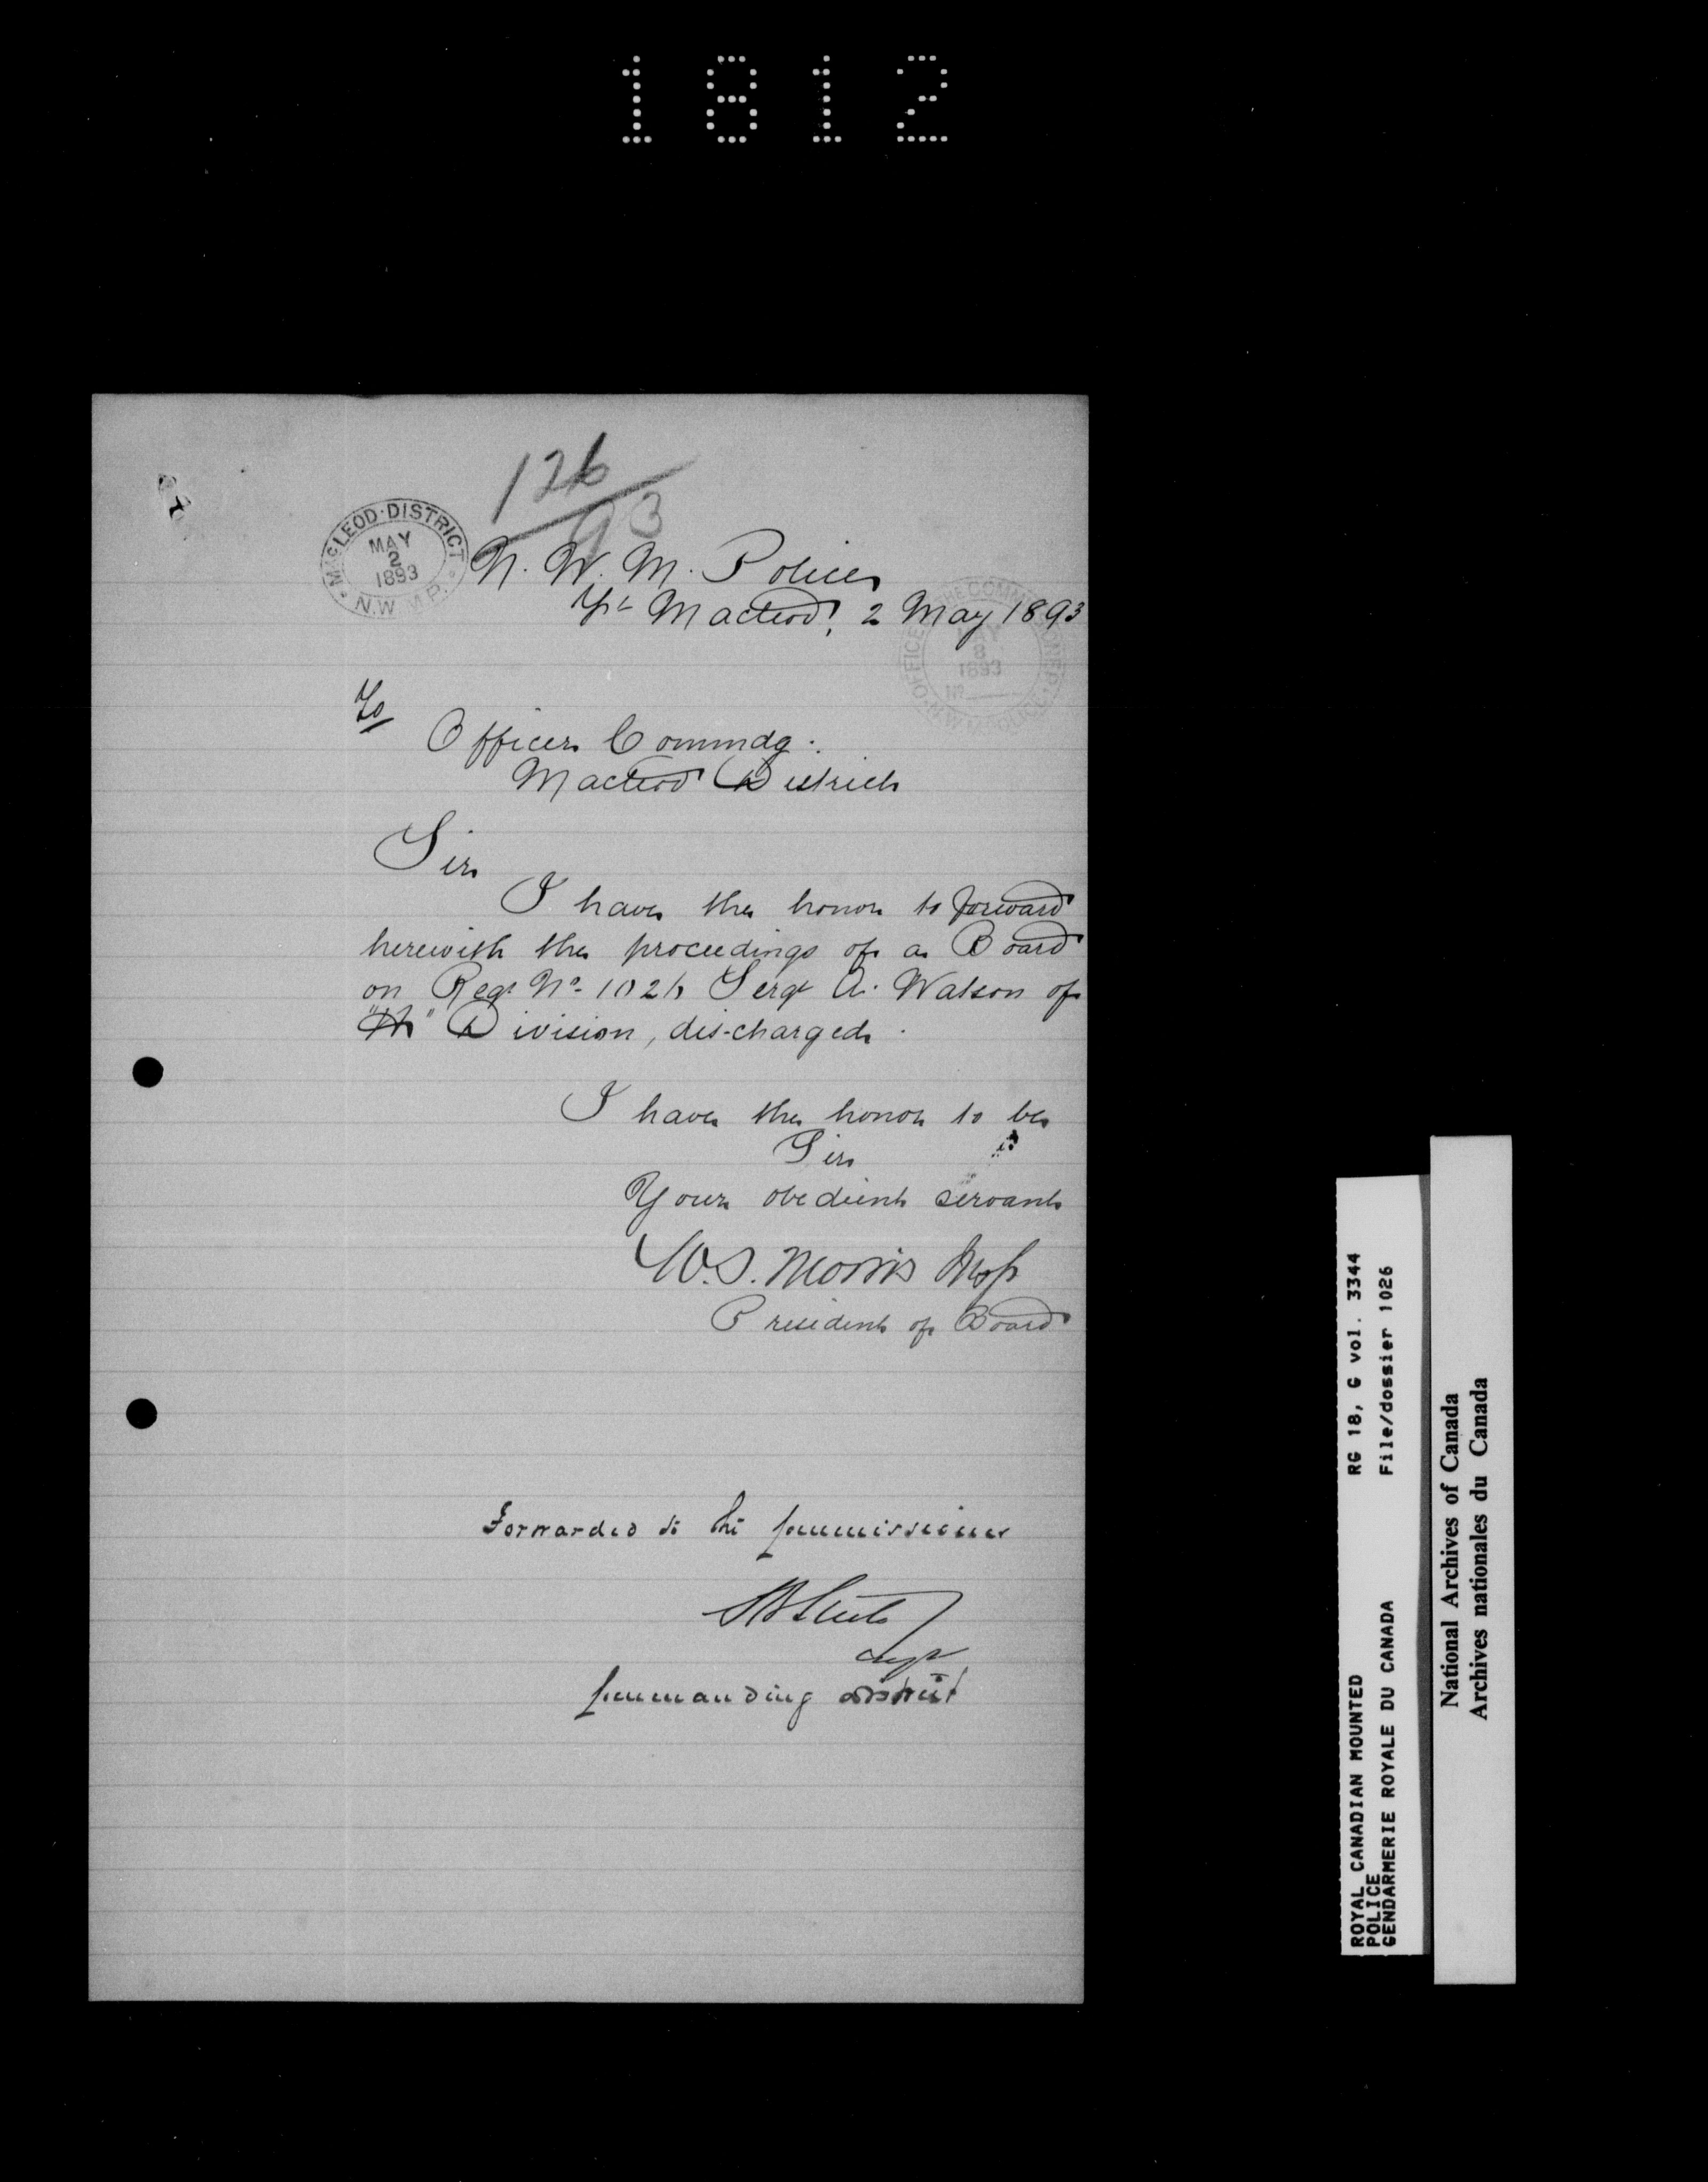 1812
126
93
MACLEOD·DISTRICT
MAY
2
1893
N.W.M.P.
N. W. M. Police
Ft Macleod, 2 May 1893
OFFICE OF THE COMMISSIONER
8
1893
N.W.M. POLICE
To
Officer Commdg.
Macleod District
Sir
I have the honor to forward
herewith the proceedings of a Board
on Regt No. 1026 Sergt A. Watson of
"H" Division, dis-charged.
I have the honor to be
Sir
Your obedient servant
W.S. Morris Insp
President of Board
Forwarded to the Commissioner
SB Steele
Supt
Commanding District
ROYAL CANADIAN MOUNTED RG 18, G vol. 3344
POLICE
GENDARMERIE ROYALE DU CANADA File/dossier 1026
National Archives of Canada
Archives nationales du Canada